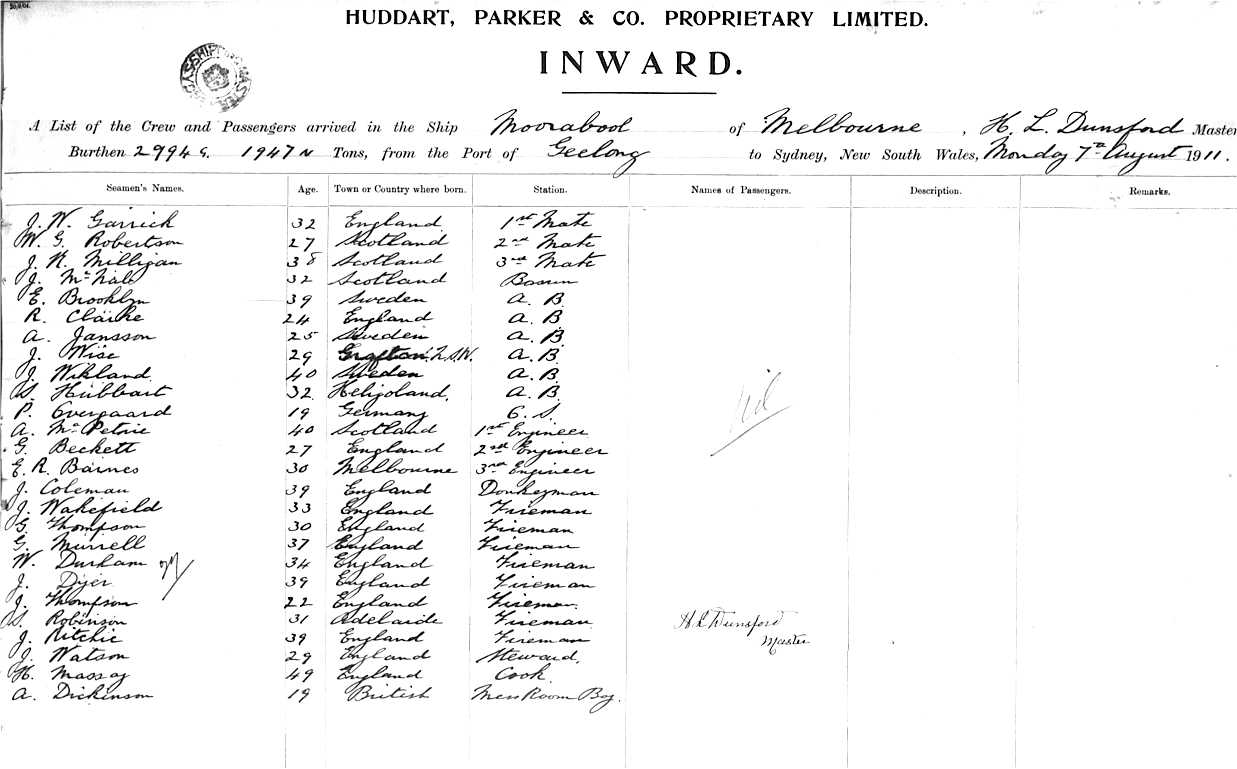 HUDDART, PARKER & CO. PROPRIETARY LIMITED.
INWARD.
A List of the Crew and Passengers arrived in the Ship Moorabool of Melbourne, H. L. Dunsford Master
Burthen 2994 G. 1947 N Tons, from the Port of Geelong to Sydney, New South Wales, Monday 7th August 1911.
Seamen's Names. Age. Town or Country where born. Station. Names of Passengers. Description. Remarks.
J. W. Garrick 32 England 1st Mate
W. G. Robertson 27 Scotland 2nd Mate
J. R. Milligan 38 Scotland 3rd Mate
J. McNale 32 Scotland Bosun
E. Brooklyn 39 Sweden A. B.
R. Clarke 24 England A. B.
A. Jansson 25 Sweden A. B.
J. Wise 29 Grafton N.S.W. A. B.
J. Wikland 40 Sweden A. B.
S. Hubbart 32 Heligoland. A. B.
P. Overgaard 19 Germany O. S.
A. McPetrie 40 Scotland 1st Engineer
G. Beckett 27 England 2nd Engineer
E. R. Barnes 30 Melbourne 3rd Engineer
J. Coleman 39 England Donkeyman
J. Wakefield 33 England Fireman
G. Thompson 30 England Fireman
G. Murrell 37 England Fireman
W. Durham 34 England Fireman
J. Dyer 39 England Fireman
J. Thompson 22 England Fireman
S. Robinson 31 Adelaide Fireman
J. Ritchie 39 England Fireman
J. Watson 29 England Steward.
H. Massay 49 England Cook
A. Dickinson 19 British Mess Room Boy.
Nil
H L Dunsford
Master